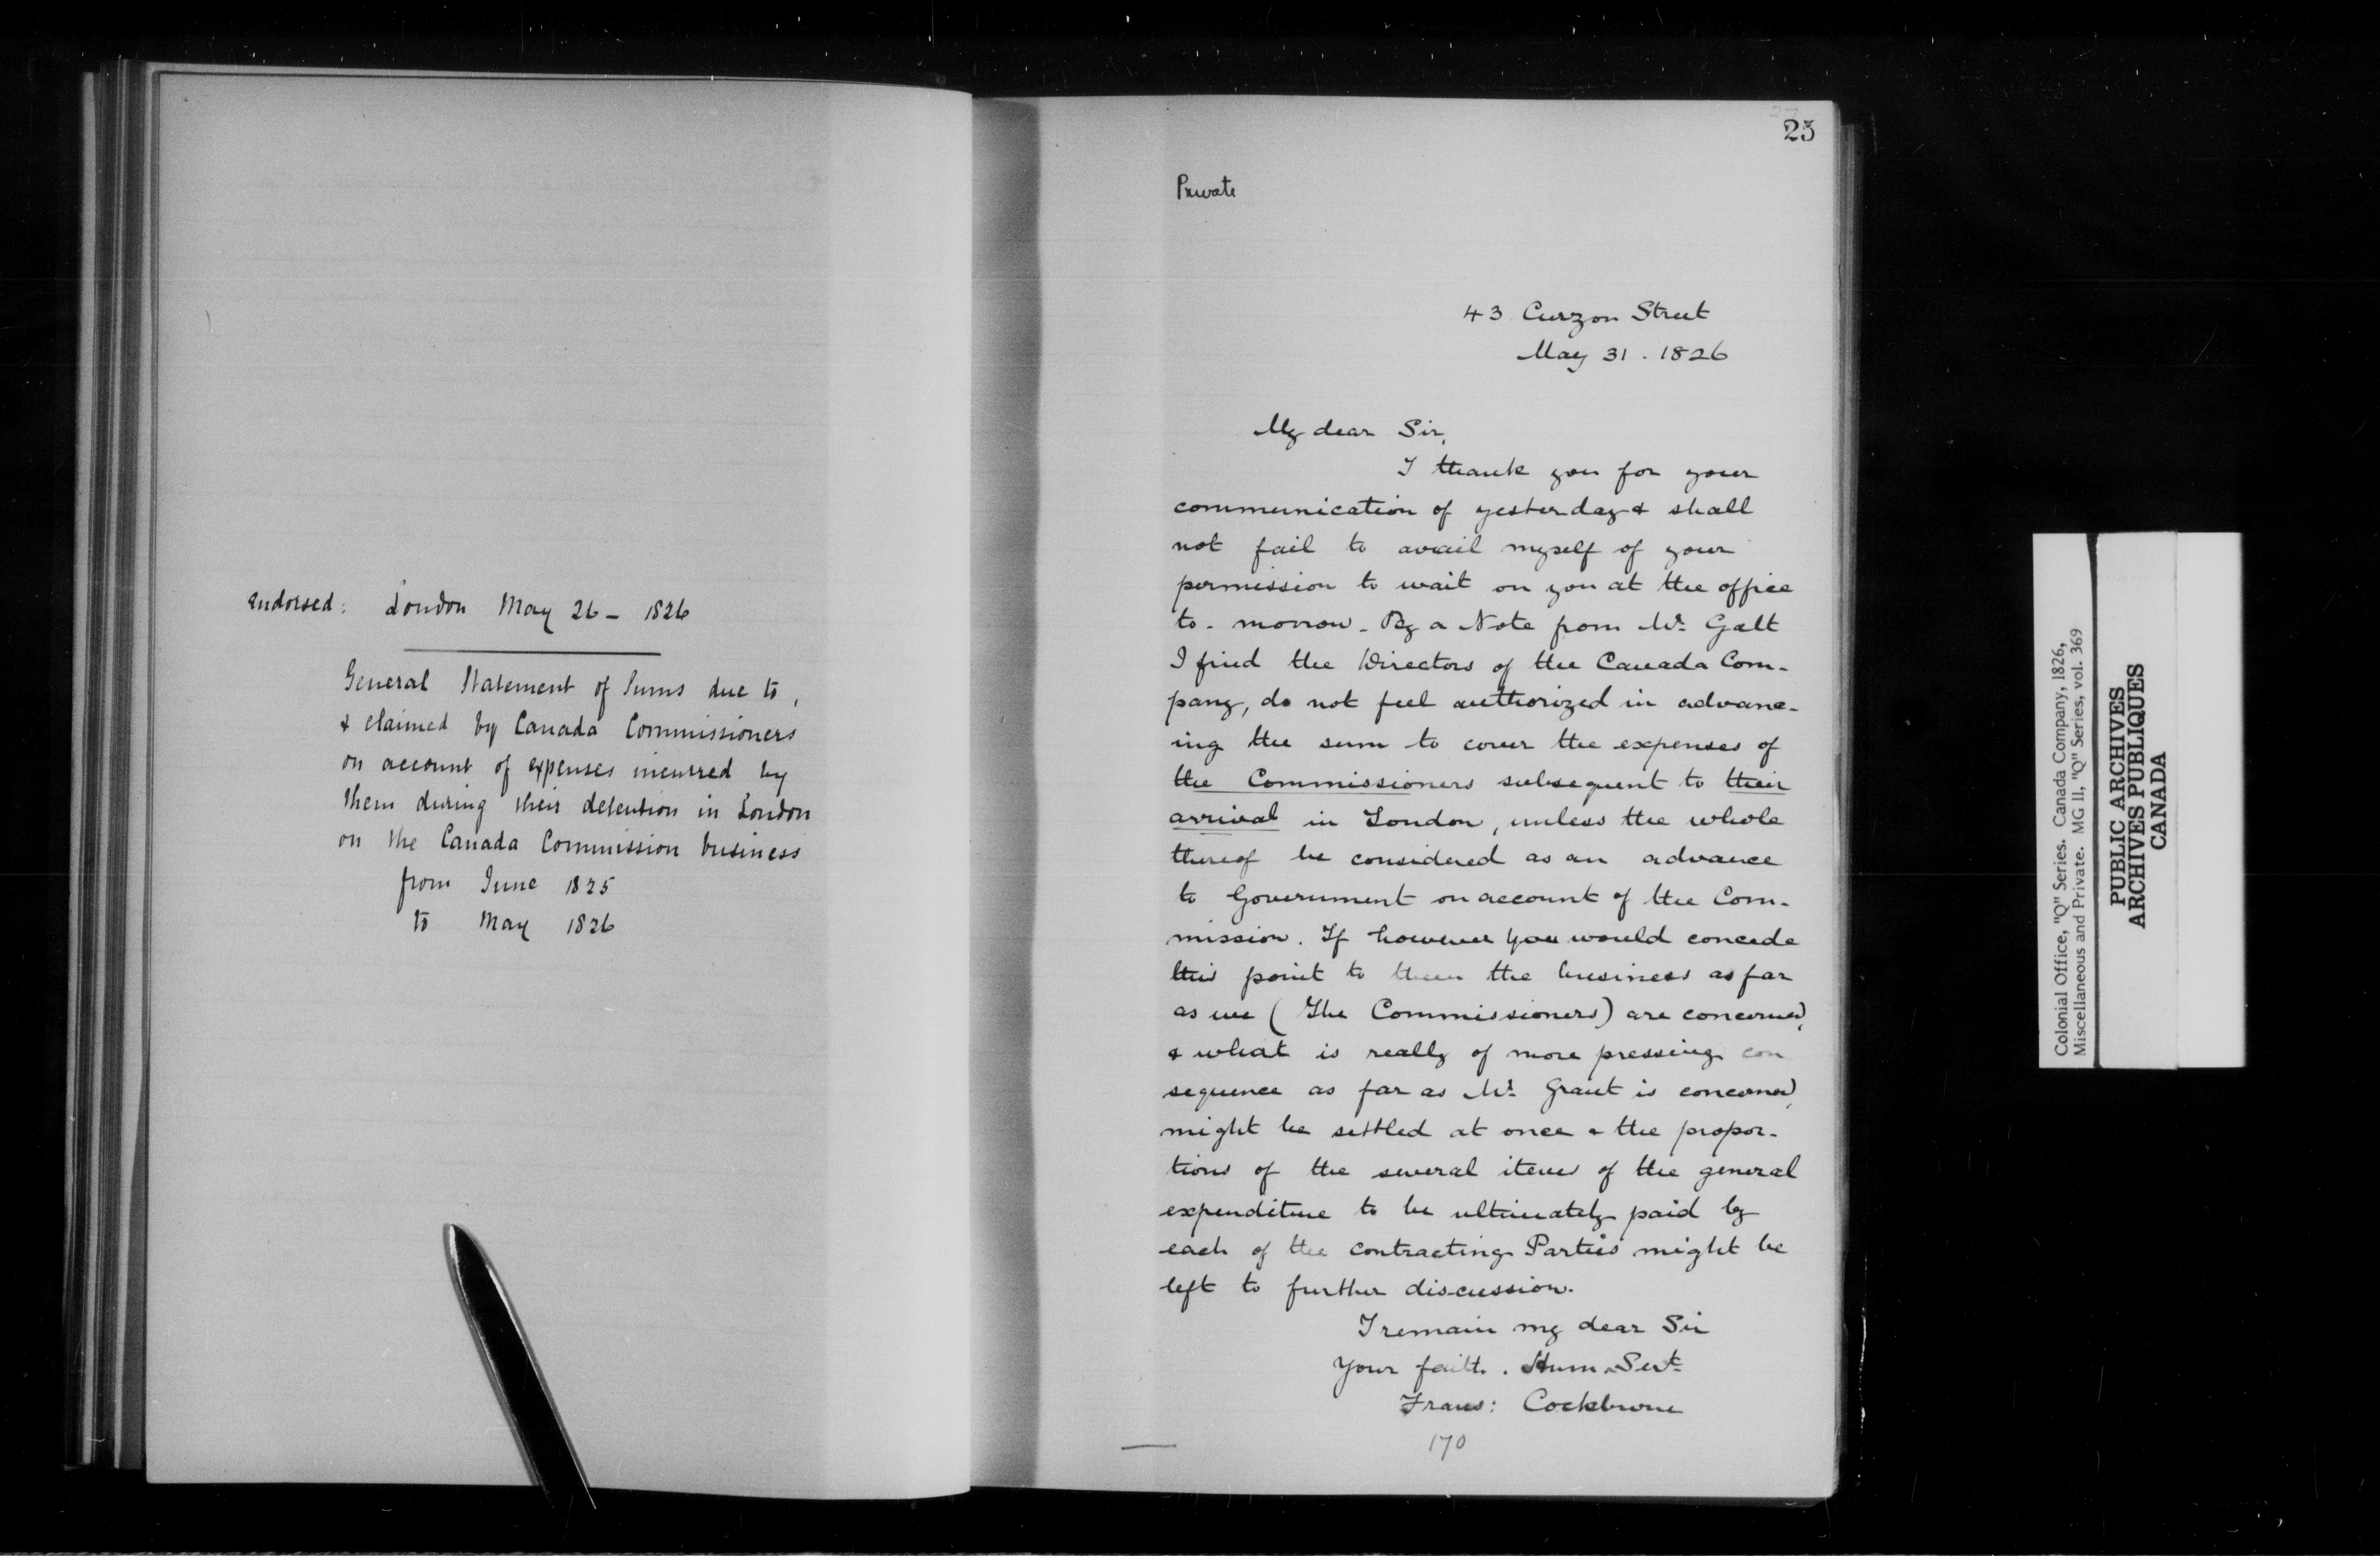 endorsed: London May 26 - 1826
General Statement of Sums due to,
& claimed by Canada Commissioners
on account of expenses incurred by
them during their detention in London
on the Canada Commission business
from June 1825
to May 1826
23
Private
43 Curzon Street
May 31. 1826
My dear Sir,
I thank you for your
communication of yesterday & shall
not fail to avail myself of your
permission to wait on you at the office
to-morrow - By a Note from Mr. Galt
I find the Directors of the Canada Com-
pany, do not feel authorized in advanc-
ing the sum to cover the expenses of
the Commissioners subsequent to their
arrival in London, unless the whole
thereof be considered as an advance
to Government on account of the Com-
mission. If however you would concede
this point to them the business as far
as we (The Commissioners) are concerned,
& what is really of more pressing con
sequence as far as Mr. Grant is concerned,
might be settled at once & the propor-
tions of the several items of the general
expenditure to be ultimately paid by
each of the contracting Parties might be
left to further discussion.
I remain my dear Sir
Your faith. Hum Servt
Frans: Cockburne
170
Colonial Office, "Q" Series. Canada Company, 1826,
Miscellaneous and Private. MG 11, "Q" Series, vol. 369
PUBLIC ARCHIVES
ARCHIVES PUBLIQUES
CANADA